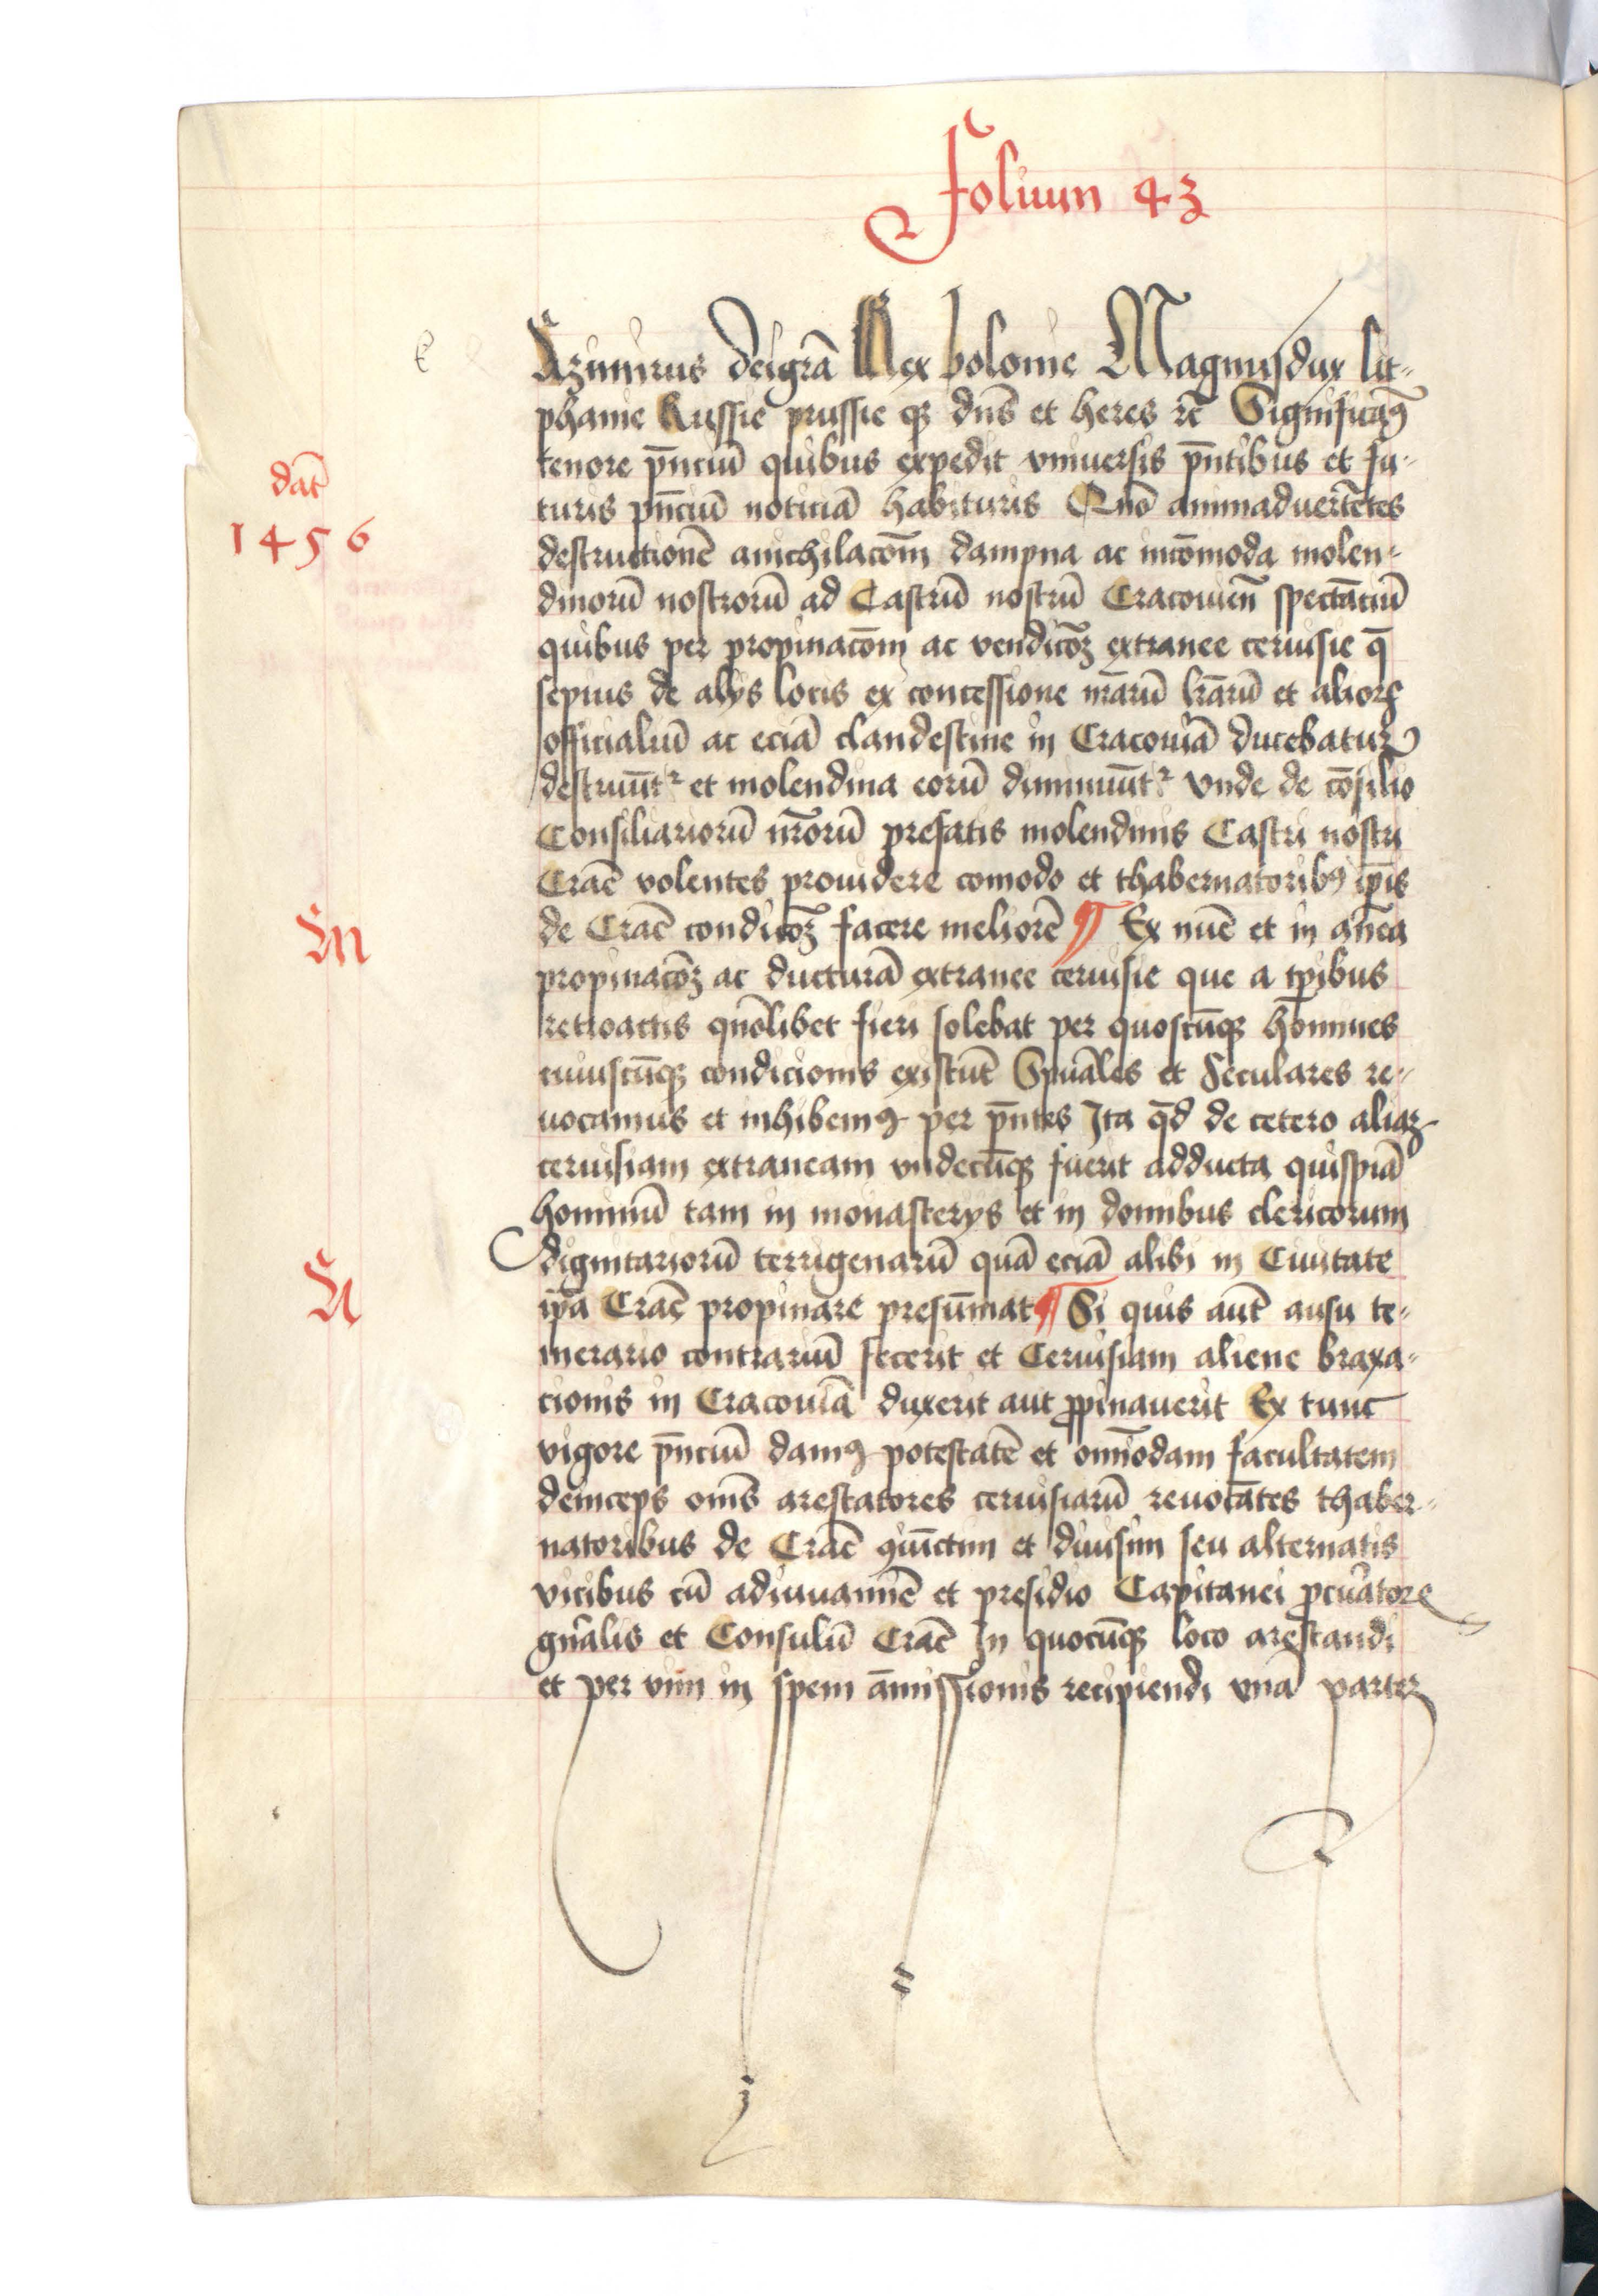 Folium 43
Azimirus deigr̄a Rex polonie Magnusdux lit-
phanie Russie prussie qꝫ dn̄s et heres rc̄ Significam⁹
tenore pn̄ciū quibus expedit vniuersis pn̄tibus et fu-
dat̄
turis pn̄ciū noticiā habituris Quō animaduertētes
1456
destructionē anichilacōm dampna ac incōmoda molen-
dinorū nostrorū ad Castrū nostrū Cracouieñ spectāciū
quibus per propinacōm ac vendicōꝫ extranee ceruisie q̄
sepius de alijs locis ex concessione nr̄arū lr̄arū et alioꝝ
officialiū ac eciā clandestine in Cracouiā ducebatur
destruūt᷑ et molendina eorū diminuūt᷑ vnde de cōsilio
Consiliariorū nr̄orū prefatis molendinis Castri nostri
Crac̄ volentes prouidere comodo et thabernatorib⁹ ip̄is
de Crac̄ condicōꝫ facere meliorē ¶ Ex nūc et in antea
M
propinacōꝫ ac ducturā extranee ceruisie que a tp̄ibus
retroactis quōlibet fieri solebat per quoscūqꝫ homines
cuiuscūqꝫ condicionis existūt Spūales et Seculares re-
uocamus et inhibem⁹ per pn̄tes Ita qd̄ de cetero aliqꝫ
ceruisiam extraneam vndecūqꝫ fuerit adducta quispiā
hominū tam in monasterijs et in domibus clericorum
dignitariorū terrigenarū quā eciā alibi in Ciuitate
N
ip̄a Crac̄ propinare presūmat ¶ Si quis aūt ausu te-
merario contrariū fecerit et Ceruisiam aliene braxa-
cionis in Cracouiā duxerit aut ꝓpinauerit Ex tunc
vigore pn̄ciū dam⁹ potestatē et omīodam facultatem
deinceps om̄s arestatores ceruisiarū reuocātes thaber-
natoribus de Crac̄ ꝯiūctim et diuisim seu alternatis
vicibus cū adiuuamīe et presidio Capitanei ꝓcūatore
gn̄alis et Consulū Crac̄ In quocūqꝫ loco arestandi
et per vim in spem āmissionis recipiendi vnā parter